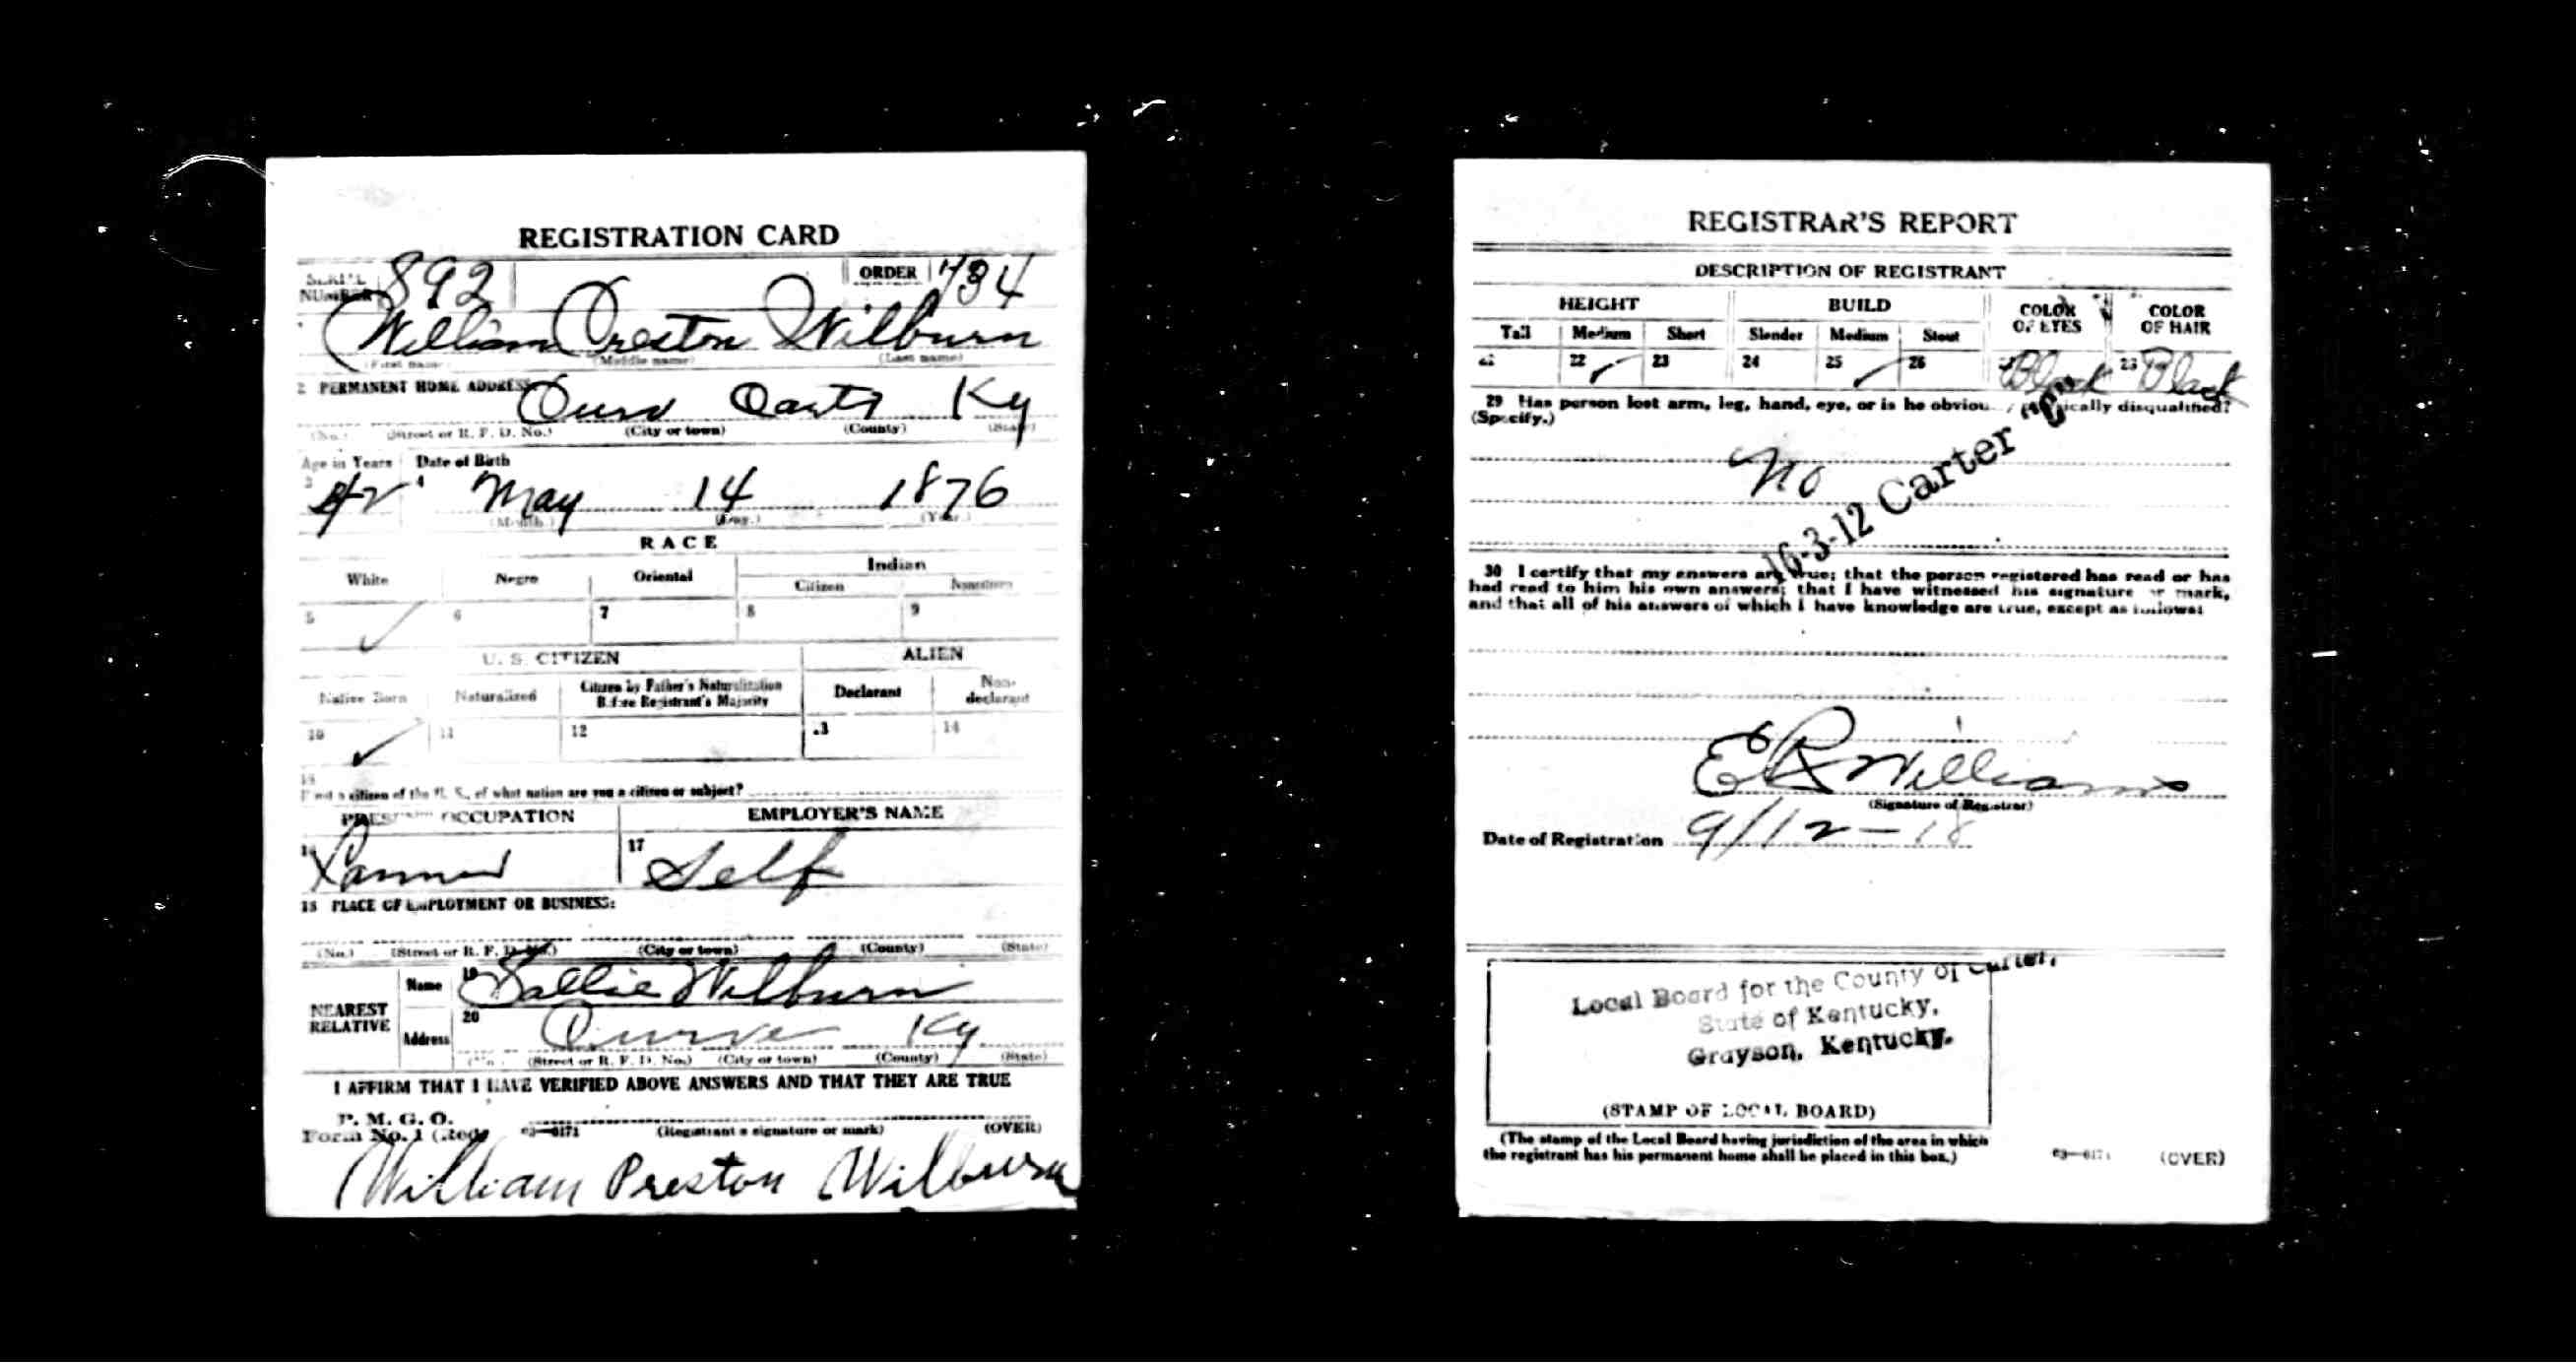 REGISTRATION CARD
SERIAL NUMBER 892 ORDER 734
William Preston Wilburn
(First name) (Middle name) (Last name)
2 PERMANENT HOME ADDRESS
Ky
(No.) (Street or R. F. D. No.) (City or town) (County) (State)
Age in Years Date of Birth
3 42 4 May 14 1876
(Month.) (Day.) (Year.)
RACE
White Negro Oriental Indian
Citizen Noncitizen
5 ✓ 6 7 8 9
U. S. CITIZEN ALIEN
Native Born Naturalized Citizen by Father's Naturalization Before Registrant's Majority Declarant Non-declarant
10 ✓ 11 12 13 14
15
If not a citizen of the U. S., of what nation are you a citizen or subject?
PRESENT OCCUPATION EMPLOYER'S NAME
16 Farmer 17 Self
18 PLACE OF EMPLOYMENT OR BUSINESS:
(No.) (Street or R. F. D. No.) (City or town) (County) (State)
NEAREST RELATIVE
Name 19 Sallie Wilburn
Address 20 Ky
(No.) (Street or R. F. D. No.) (City or town) (County) (State)
I AFFIRM THAT I HAVE VERIFIED ABOVE ANSWERS AND THAT THEY ARE TRUE
P. M. G. O.
Form No. 1 (Red) 03—6171 (Registrant's signature or mark) (OVER)
William Preston Wilburn
REGISTRAR'S REPORT
DESCRIPTION OF REGISTRANT
HEIGHT BUILD COLOR OF EYES COLOR OF HAIR
Tall Medium Short Slender Medium Stout
21 22 ✓ 23 24 25 ✓ 26 27 Black 28 Black
29 Has person lost arm, leg, hand, eye, or is he obviously physically disqualified?
(Specify.)
No
16-3-12 Carter
30 I certify that my answers are true; that the person registered has read or has
had read to him his own answers; that I have witnessed his signature or mark,
and that all of his answers of which I have knowledge are true, except as follows:
E R Williams
(Signature of Registrar)
Date of Registration 9/12-18
Local Board for the County of Carter,
State of Kentucky,
Grayson, Kentucky.
(STAMP OF LOCAL BOARD)
(The stamp of the Local Board having jurisdiction of the area in which
the registrant has his permanent home shall be placed in this box.)
03—6171 (OVER)